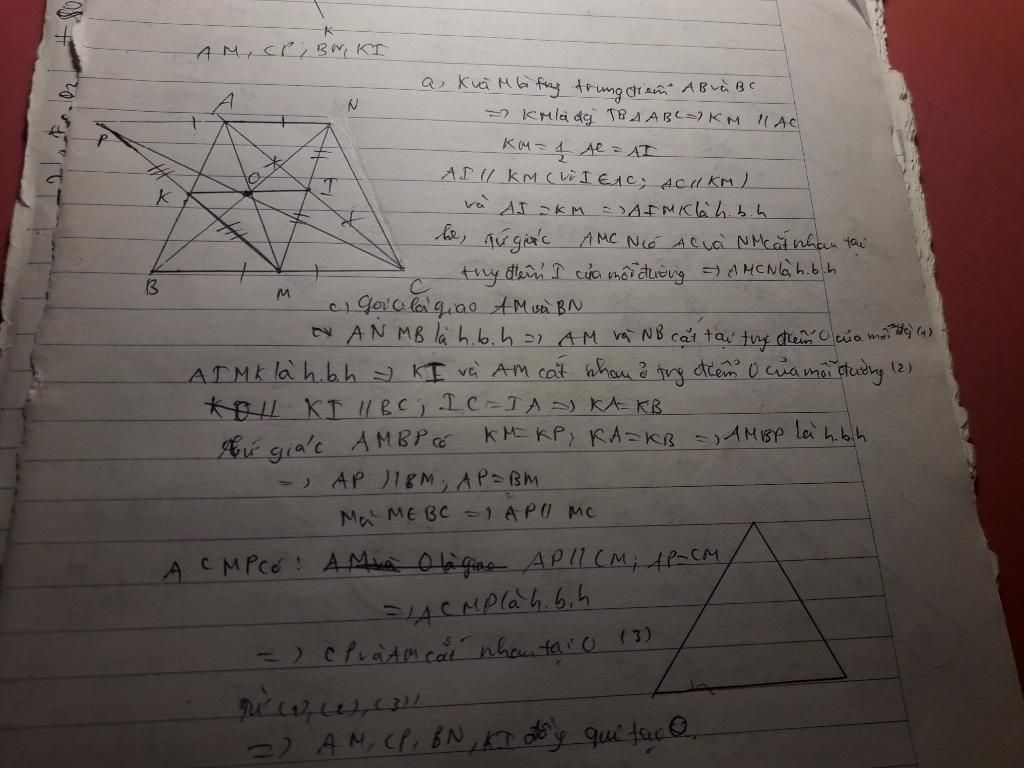 K
AM, CP, BN, KI
a, K và M là tung trung điểm AB và BC
=> KM là đg TB ΔABC => KM // AC
KM = 1/2 AC = AI
AI // KM (vì I ∈ AC; AC // KM)
và AI = KM => AIMK là h.b.h
b, Tứ giác AMCN có AC và NM cắt nhau tại
tng điểm I của mỗi đường => AMCN là h.b.h
A N
P
O I
K
B M C
c, Gọi O là giao AM và BN
ANMB là h.b.h => AM và NB cắt tại tng điểm O của mỗi đg (1)
AIMK là h.b.h => KI và AM cắt nhau ở tng điểm O của mỗi đường (2)
KI // BC; IC = IA => KA = KB
Tứ giác AMBP có KM = KP; KA = KB => AMBP là h.b.h
=> AP // BM; AP = BM
Mà M ∈ BC => AP // MC
ACMP có: AM và O là giao AP // CM; AP = CM
=> ACMP là h.b.h
=> CP và AM cắt nhau tại O (3)
Từ (1), (2), (3)
=> AM, CP, BN, KI đồng qui tại O.